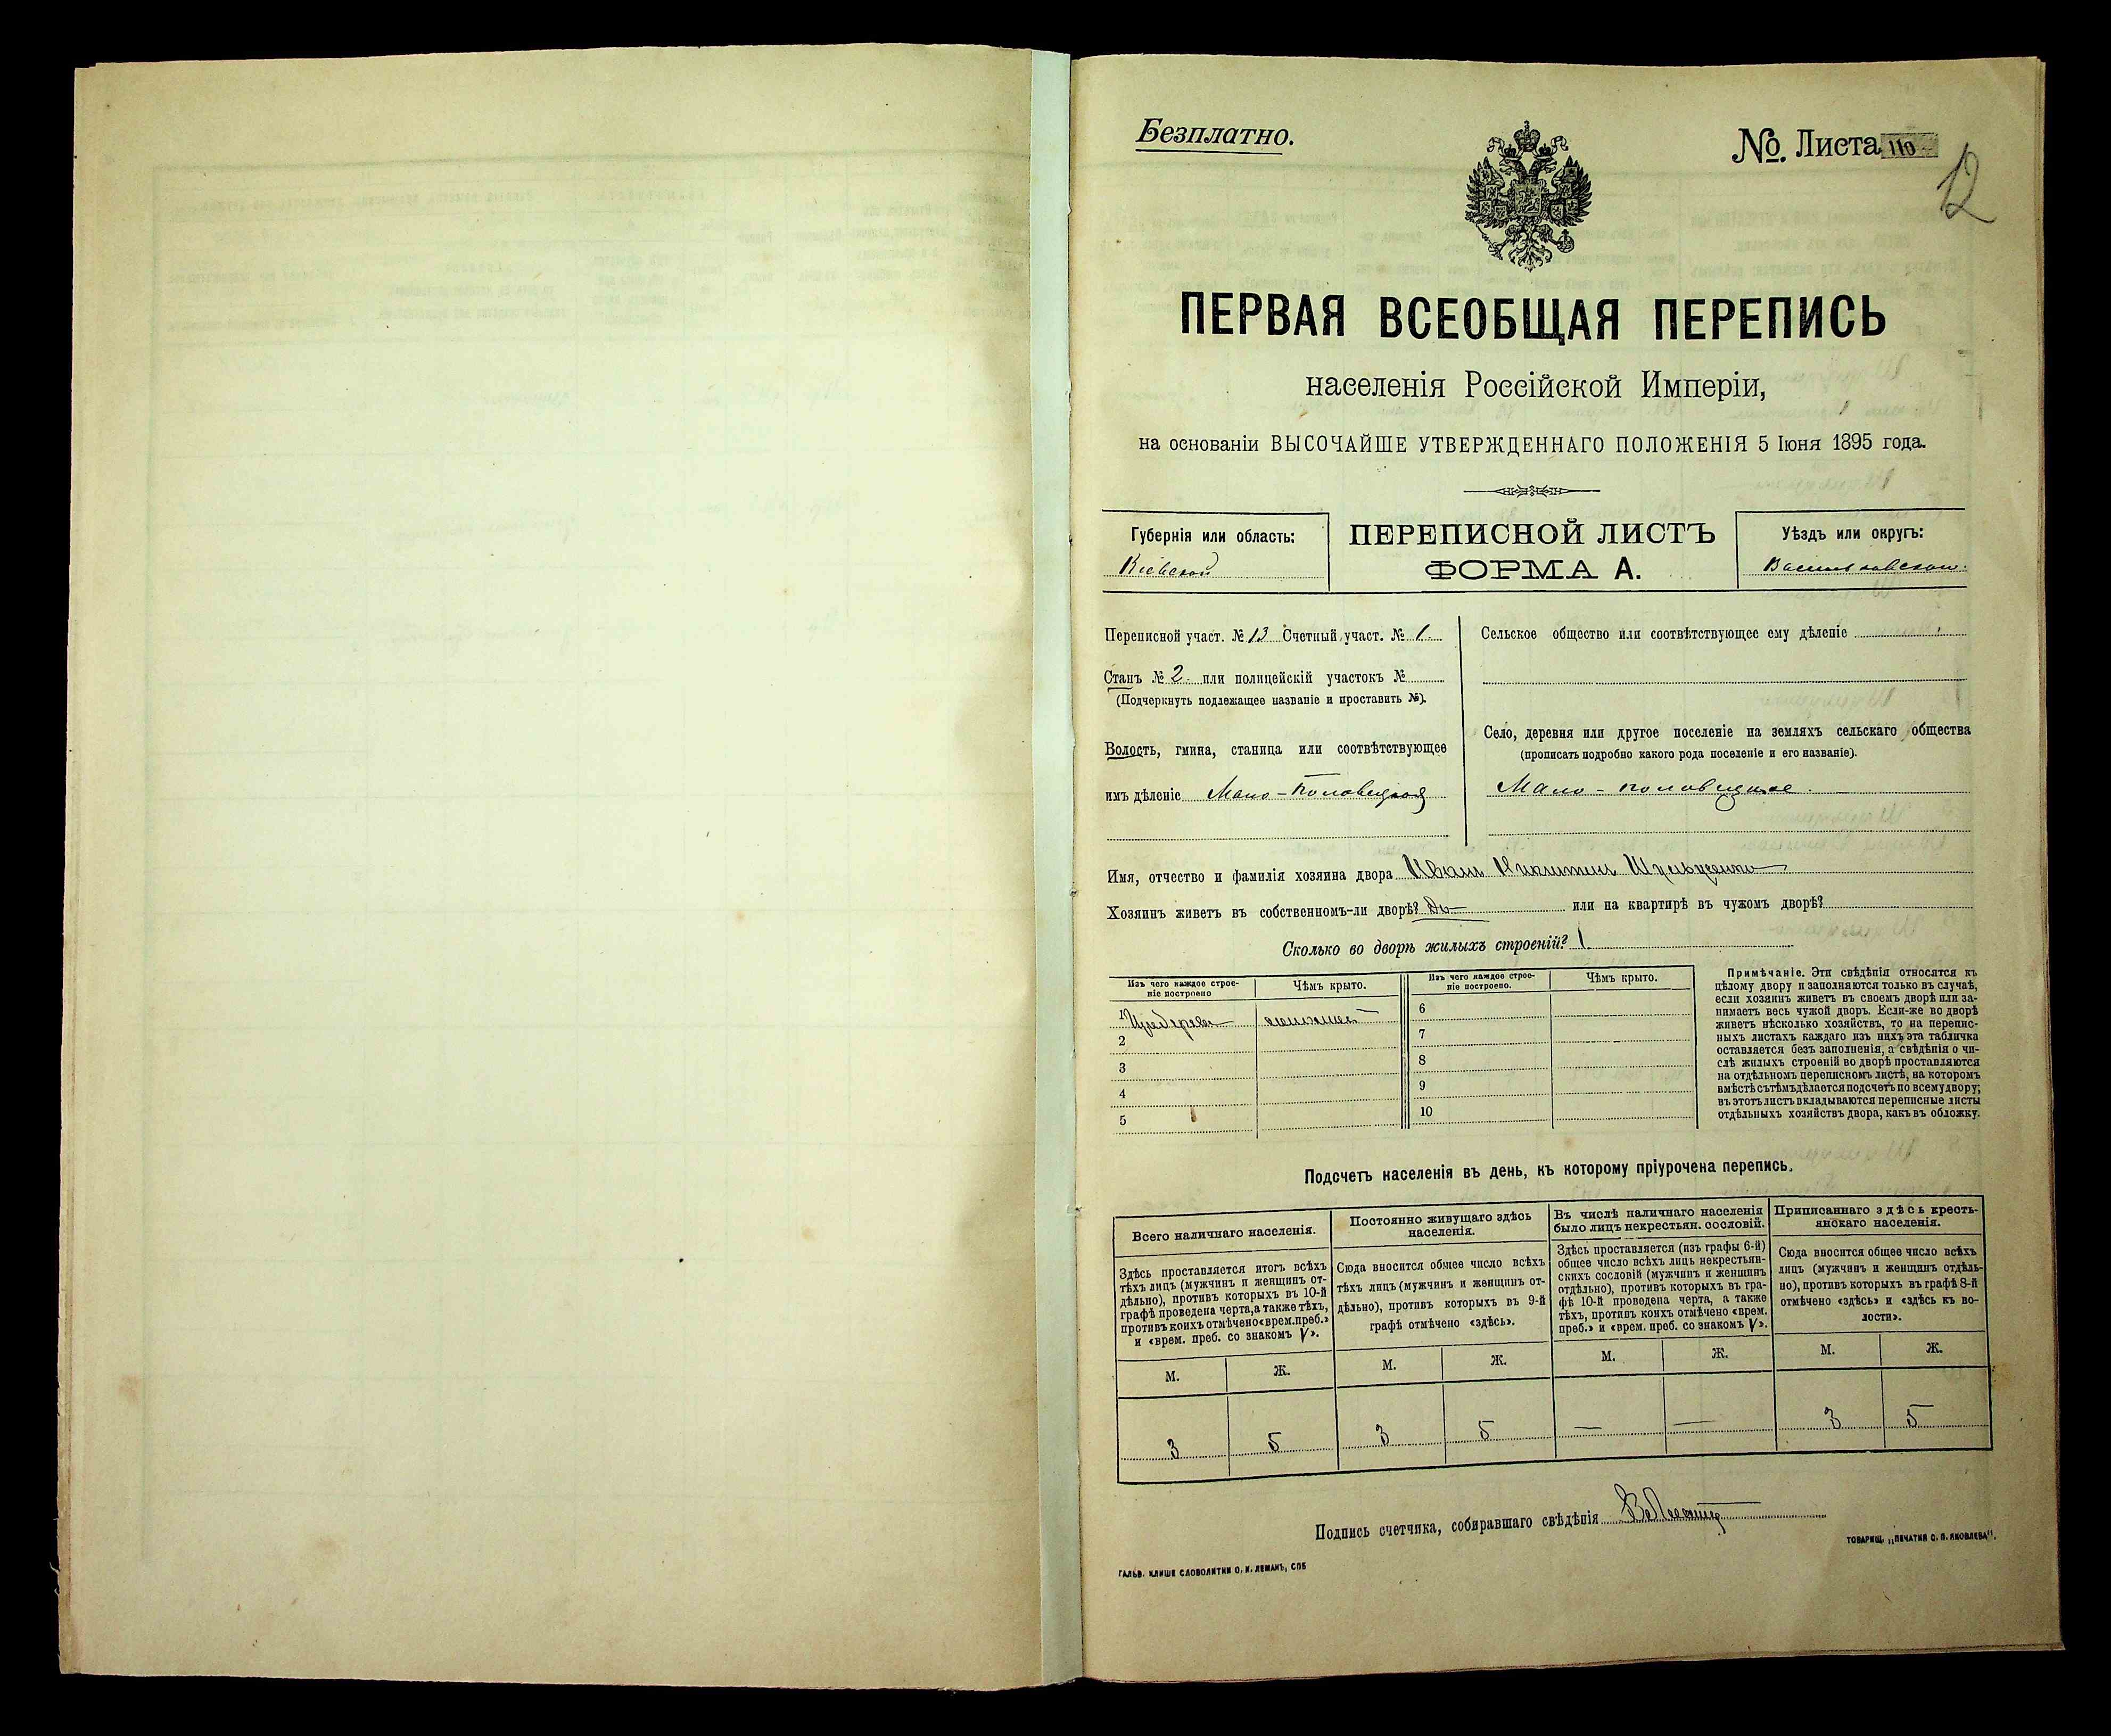 Безплатно.
№. Листа 110
12
ПЕРВАЯ ВСЕОБЩАЯ ПЕРЕПИСЬ
населенія Россійской Имперіи,
на основаніи ВЫСОЧАЙШЕ УТВЕРЖДЕННАГО ПОЛОЖЕНІЯ 5 Іюня 1895 года.
Губернія или область:
Кіевской
ПЕРЕПИСНОЙ ЛИСТЪ
ФОРМА А.
Уѣздъ или округъ:
Васильковскаго
Переписной участ. № 13 Счетный участ. № 1.
Станъ № 2. или полицейскій участокъ №
(Подчеркнуть подлежащее названіе и проставить №).
Волость, гмина, станица или соотвѣтствующее
имъ дѣленіе Мало-Половецкой
Сельское общество или соотвѣтствующее ему дѣленіе
Село, деревня или другое поселеніе на земляхъ сельскаго общества
(прописать подробно какого рода поселеніе и его названіе).
Мало-половецкое.
Имя, отчество и фамилія хозяина двора Иванъ Никитинъ
Хозяинъ живетъ въ собственномъ-ли дворѣ? Да или на квартирѣ въ чужомъ дворѣ?
Сколько во дворѣ жилыхъ строеній? 1
Изъ чего каждое строе-
ніе построено
Чѣмъ крыто.
Изъ чего каждое строе-
ніе построено.
Чѣмъ крыто.
1 Изъ дерева соломой
2
3
4
5
6
7
8
9
10
Примѣчаніе. Эти свѣдѣнія относятся къ
цѣлому двору и заполняются только въ случаѣ,
если хозяинъ живетъ въ своемъ дворѣ или за-
нимаетъ весь чужой дворъ. Если-же во дворѣ
живетъ нѣсколько хозяйствъ, то на перепис-
ныхъ листахъ каждаго изъ нихъ эта табличка
оставляется безъ заполненія, а свѣдѣнія о чи-
слѣ жилыхъ строеній во дворѣ проставляются
на отдѣльномъ переписномъ листѣ, на которомъ
вмѣстѣ съ тѣмъ дѣлается подсчетъ по всему двору;
въ этотъ листъ вкладываются переписные листы
отдѣльныхъ хозяйствъ двора, какъ въ обложку.
Подсчетъ населенія въ день, къ которому пріурочена перепись.
Всего наличнаго населенія.
Здѣсь проставляется итогъ всѣхъ
тѣхъ лицъ (мужчинъ и женщинъ от-
дѣльно), противъ которыхъ въ 10-й
графѣ проведена черта, а также тѣхъ,
противъ коихъ отмѣчено «врем. преб.»
и «врем. преб. со знакомъ V».
М. Ж.
3 5
Постоянно живущаго здѣсь
населенія.
Сюда вносится общее число всѣхъ
тѣхъ лицъ (мужчинъ и женщинъ от-
дѣльно), противъ которыхъ въ 9-й
графѣ отмѣчено «здѣсь».
М. Ж.
3 5
Въ числѣ наличнаго населенія
было лицъ некрестьян. сословій.
Здѣсь проставляется (изъ графы 6-й)
общее число всѣхъ лицъ некрестьян-
скихъ сословій (мужчинъ и женщинъ
отдѣльно), противъ которыхъ въ гра-
фѣ 10-й проведена черта, а также
тѣхъ, противъ коихъ отмѣчено «врем.
преб.» и «врем. преб. со знакомъ V».
М. Ж.
— —
Приписаннаго здѣсь кресть-
янскаго населенія.
Сюда вносится общее число всѣхъ
лицъ (мужчинъ и женщинъ отдѣль-
но), противъ которыхъ въ графѣ 8-й
отмѣчено «здѣсь» и «здѣсь къ во-
лости».
М. Ж.
3 5
Подпись счетчика, собиравшаго свѣдѣнія
ТОВАРИЩ. „ПЕЧАТНЯ С. П. ЯКОВЛЕВА“.
ГАЛЬВ. КЛИШЕ СЛОВОЛИТНИ О. И. ЛЕМАНЪ, СПБ